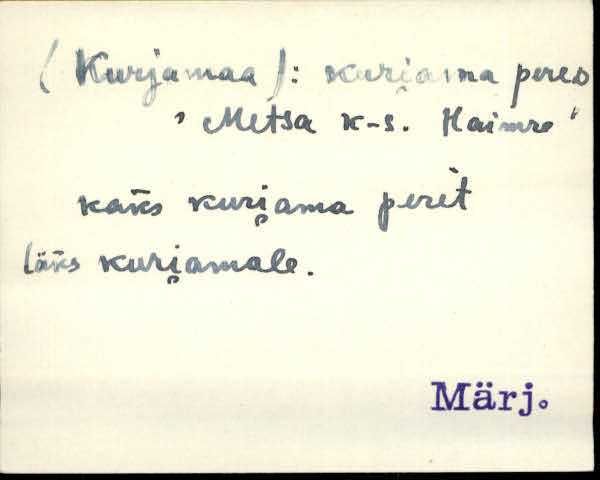 (Kurjamaa): kuri̯ama peres
' Metsa k-s. Haimre '
kak̆s kuri̯ama perit̆
läk̆s kuri̯amale.
Märj.